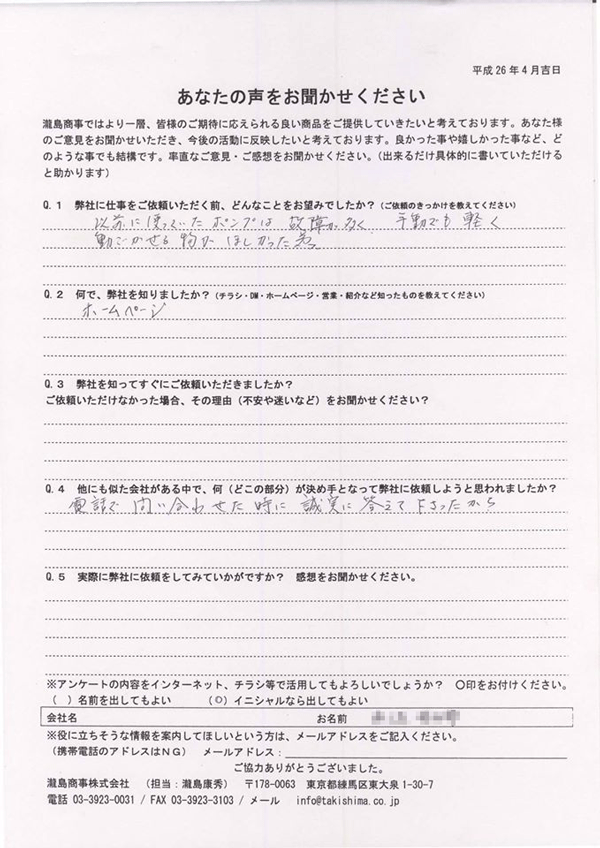 平成26年4月吉日
あなたの声をお聞かせください
瀧島商事ではより一層、皆様のご期待に応えられる良い商品をご提供していきたいと考えております。あなた様
のご意見をお聞かせいただき、今後の活動に反映したいと考えております。良かった事や嬉しかった事など、ど
のような事でも結構です。率直なご意見・ご感想をお聞かせください。（出来るだけ具体的に書いていただける
と助かります）
Q.1 弊社に仕事をご依頼いただく前、どんなことをお望みでしたか？（ご依頼のきっかけを教えてください）
以前に使っていたポンプは故障が多く 手動でも軽く
動かせる物がほしかった為
Q.2 何で、弊社を知りましたか？（チラシ・DM・ホームページ・営業・紹介など知ったものを教えてください）
ホームページ
Q.3 弊社を知ってすぐにご依頼いただきましたか？
ご依頼いただけなかった場合、その理由（不安や迷いなど）をお聞かせください？
Q.4 他にも似た会社がある中で、何（どこの部分）が決め手となって弊社に依頼しようと思われましたか？
電話で問い合わせた時に誠実に答えて下さったから
Q.5 実際に弊社に依頼をしてみていかがですか？ 感想をお聞かせください。
※アンケートの内容をインターネット、チラシ等で活用してもよろしいでしょうか？ 〇印をお付けください。
（ ）名前を出してもよい （○）イニシャルなら出してもよい
会社名 お名前
※役に立ちそうな情報を案内してほしいという方は、メールアドレスをご記入ください。
（携帯電話のアドレスはNG） メールアドレス：
ご協力ありがとうございました。
瀧島商事株式会社 （担当：瀧島康秀） 〒178-0063 東京都練馬区東大泉1-30-7
電話 03-3923-0031 / FAX 03-3923-3103 / メール info@takishima.co.jp